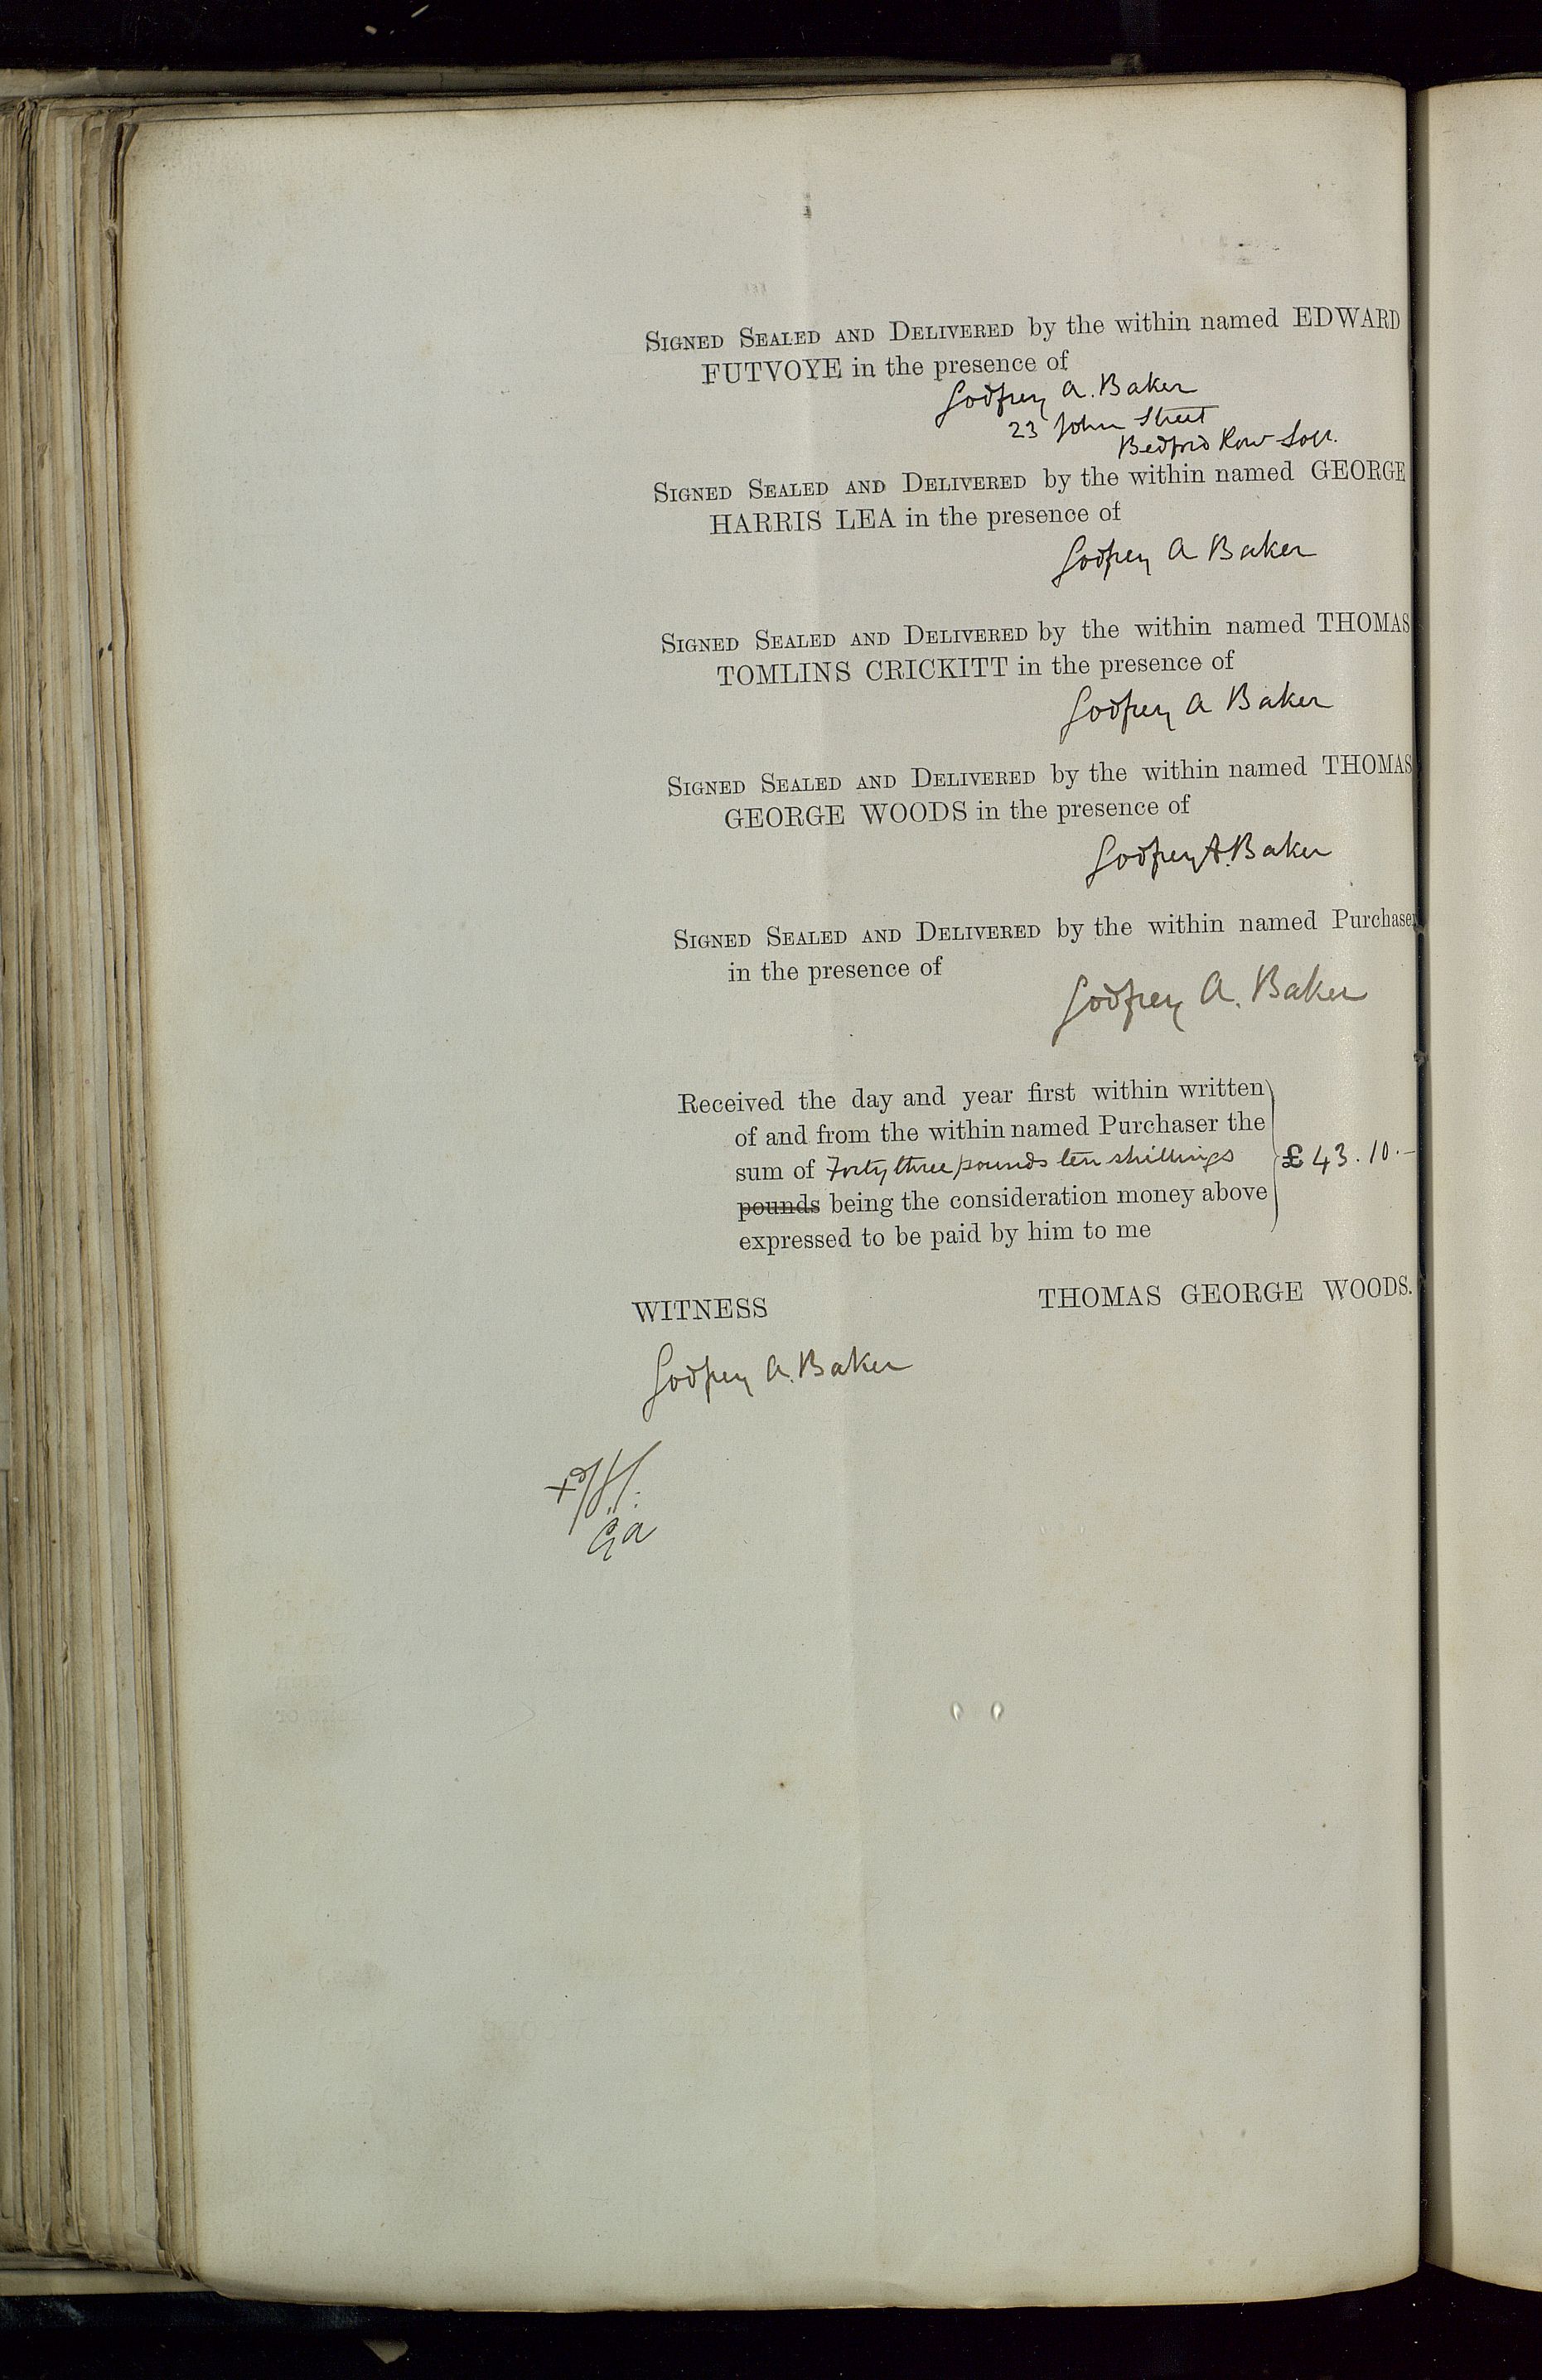 SIGNED SEALED AND DELIVERED by the within named EDWARD
FUTVOYE in the presence of
Godfrey A. Baker
23 John Street
Bedford Row Solr.
SIGNED SEALED AND DELIVERED by the within named GEORGE
HARRIS LEA in the presence of
Godfrey A Baker
SIGNED SEALED AND DELIVERED by the within named THOMAS
TOMLINS CRICKITT in the presence of
Godfrey A Baker
SIGNED SEALED AND DELIVERED by the within named THOMAS
GEORGE WOODS in the presence of
Godfrey A. Baker
SIGNED SEALED AND DELIVERED by the within named Purchaser
in the presence of
Godfrey A. Baker
Received the day and year first within written
of and from the within named Purchaser the
sum of Forty three pounds ten shillings £43.10.-
pounds being the consideration money above
expressed to be paid by him to me
WITNESS THOMAS GEORGE WOODS.
Godfrey A. Baker